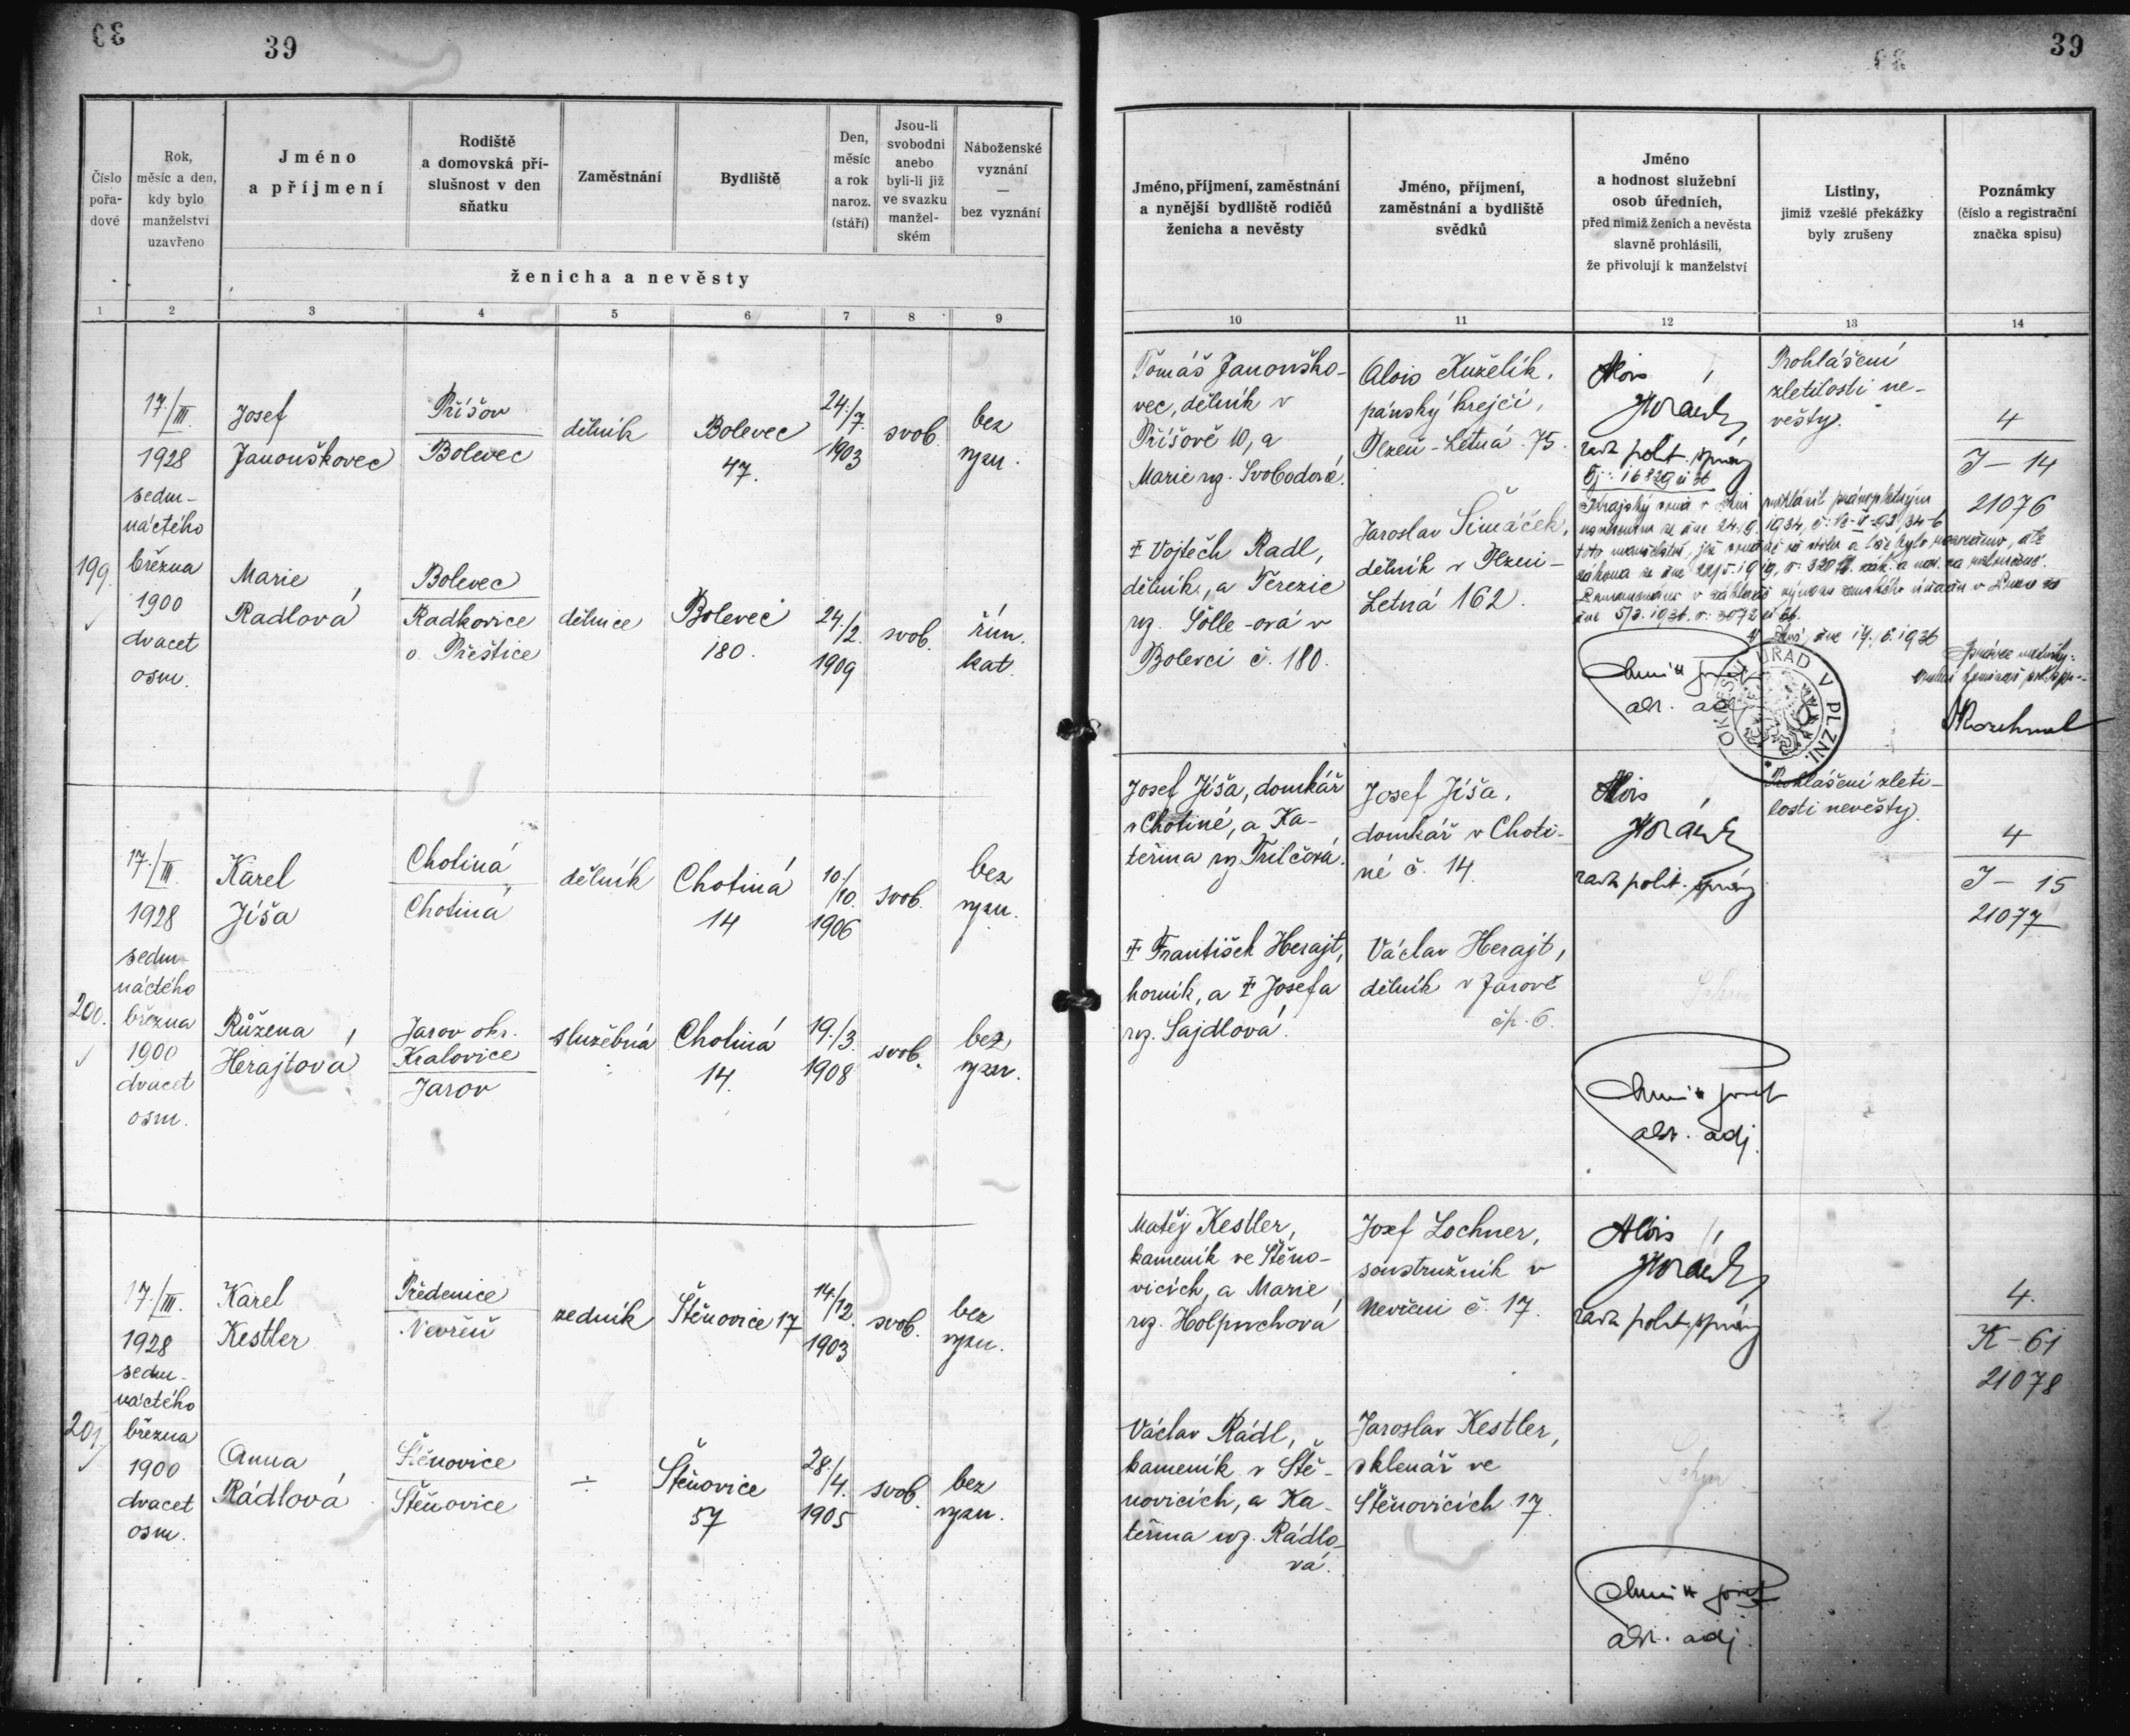 39
39
Číslo pořa-dové
Rok, měsíc a den, kdy bylo manželství uzavřeno
Jméno a příjmení
Rodiště a domovská pří-slušnost v den sňatku
Zaměstnání
Bydliště
Den, měsíc a rok naroz. (stáří)
Jsou-li svobodni anebo byli-li již ve svazku manžel-ském
Náboženské vyznání — bez vyznání
ženicha a nevěsty
1 2 3 4 5 6 7 8 9
Jméno, příjmení, zaměstnání a nynější bydliště rodičů ženicha a nevěsty
Jméno, příjmení, zaměstnání a bydliště svědků
Jméno a hodnost služební osob úředních, před nimiž ženich a nevěsta slavně prohlásili, že přivolují k manželství
Listiny, jimiž vzešlé překážky byly zrušeny
Poznámky (číslo a registrační značka spisu)
10 11 12 13 14
199.
17./III.
1928
sedm-
náctého
března
1900
dvacet
osm.
Josef
Janouškovec
Příšov
Bolevec
dělník
Bolevec
47.
24./7.
1903
svob.
bez
vyzn.
Marie
Radlová
Bolevec
Radkovice
o. Přeštice
dělnice
Bolevec
180.
24./2.
1909
svob.
řím.
kat.
Tomáš Janouško-
vec, dělník v
Příšově 10, a
Marie roz. Svobodová.
Ŧ Vojtěch Radl,
dělník, a Terezie
roz. Šölle-ová v
Bolevci č. 180.
Alois Kuželík,
pánský krejčí,
Plzeň-Letná 75.
Jaroslav Šimáček,
dělník v Plzni-
Letná 162.
Alois
Horák
rada polit. správy
Prohlášení
zletilosti ne-
věsty.
OKRESNÍ ÚŘAD V PLZNI.
4
J – 14
21076
200.
17./III.
1928
sedm-
náctého
března
1900
dvacet
osm.
Karel
Jíša
Chotiná
Chotiná
dělník
Chotiná
14
10./10.
1906
svob.
bez
vyzn.
Růžena
Herajtová
Jarov okr.
Kralovice
Jarov
služebná
Chotiná
14.
19./3.
1908
svob.
bez
vyzn.
Josef Jíša, domkář
v Chotiné, a Ka-
teřina roz. Trilčová.
Ŧ František Herajt,
horník, a Ŧ Josefa
roz. Sajdlová.
Josef Jíša,
domkář v Choti-
né č. 14.
Václav Herajt,
dělník v Jarově
čp. 6.
Alois
Horák
rada polit. správy
adj.
Prohlášení zleti-
losti nevěsty.
4
J – 15
21077
201.
17./III.
1928
sedm-
náctého
března
1900
dvacet
osm.
Karel
Kestler
Předenice
Nevřeň
zedník
Štěnovice 17
14/12.
1903
svob.
bez
vyzn.
Anna
Rádlová
Štěnovice
Štěnovice
÷
Štěnovice
57
28./4.
1905
svob.
bez
vyzn.
Matěj Kestler,
kameník ve Štěno-
vicích, a Marie
roz.
Václav Rádl,
kameník v Ště-
novicích, a Ka-
teřina roz. Rádlo-
vá.
Josef Lochner,
soustružník v
Nevřeni č. 17.
Jaroslav Kestler,
sklenář ve
Štěnovicích 17.
Alois
Horák
rada polit. správy
adj.
4.
K – 61
21078